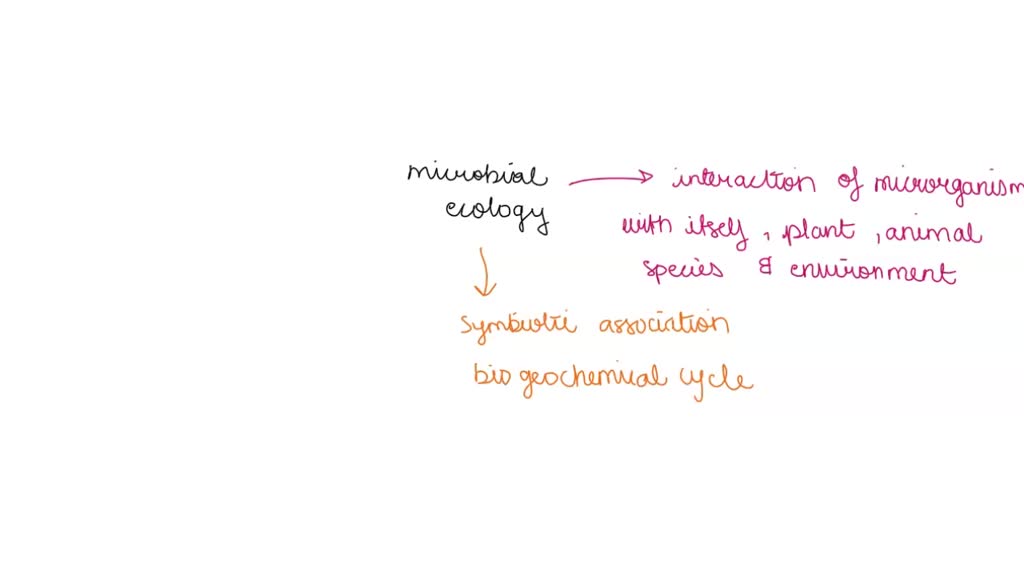 microbial
ecology
interaction of microrganism
with itself, plant, animal
species & environment
symbiotic association
biogeochemical cycle